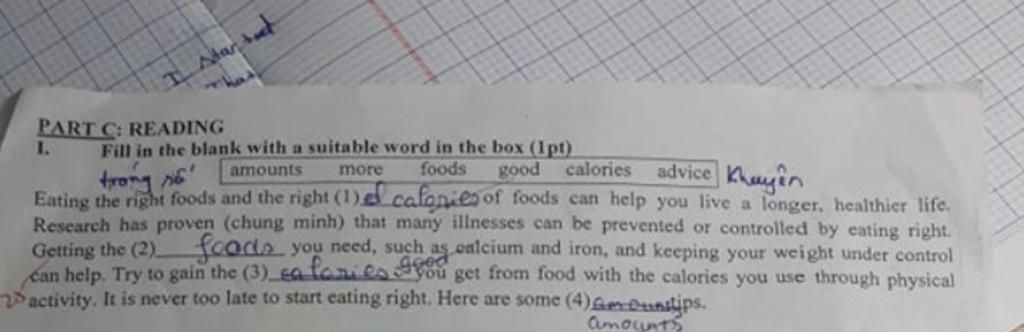 I started
that
PART C: READING
I. Fill in the blank with a suitable word in the box (1pt)
trong số amounts more foods good calories advice Khuyên
Eating the right foods and the right (1) calories of foods can help you live a longer, healthier life.
Research has proven (chung minh) that many illnesses can be prevented or controlled by eating right.
Getting the (2) foods you need, such as calcium and iron, and keeping your weight under control
good
can help. Try to gain the (3) calories you get from food with the calories you use through physical
activity. It is never too late to start eating right. Here are some (4) amounts tips.
amounts